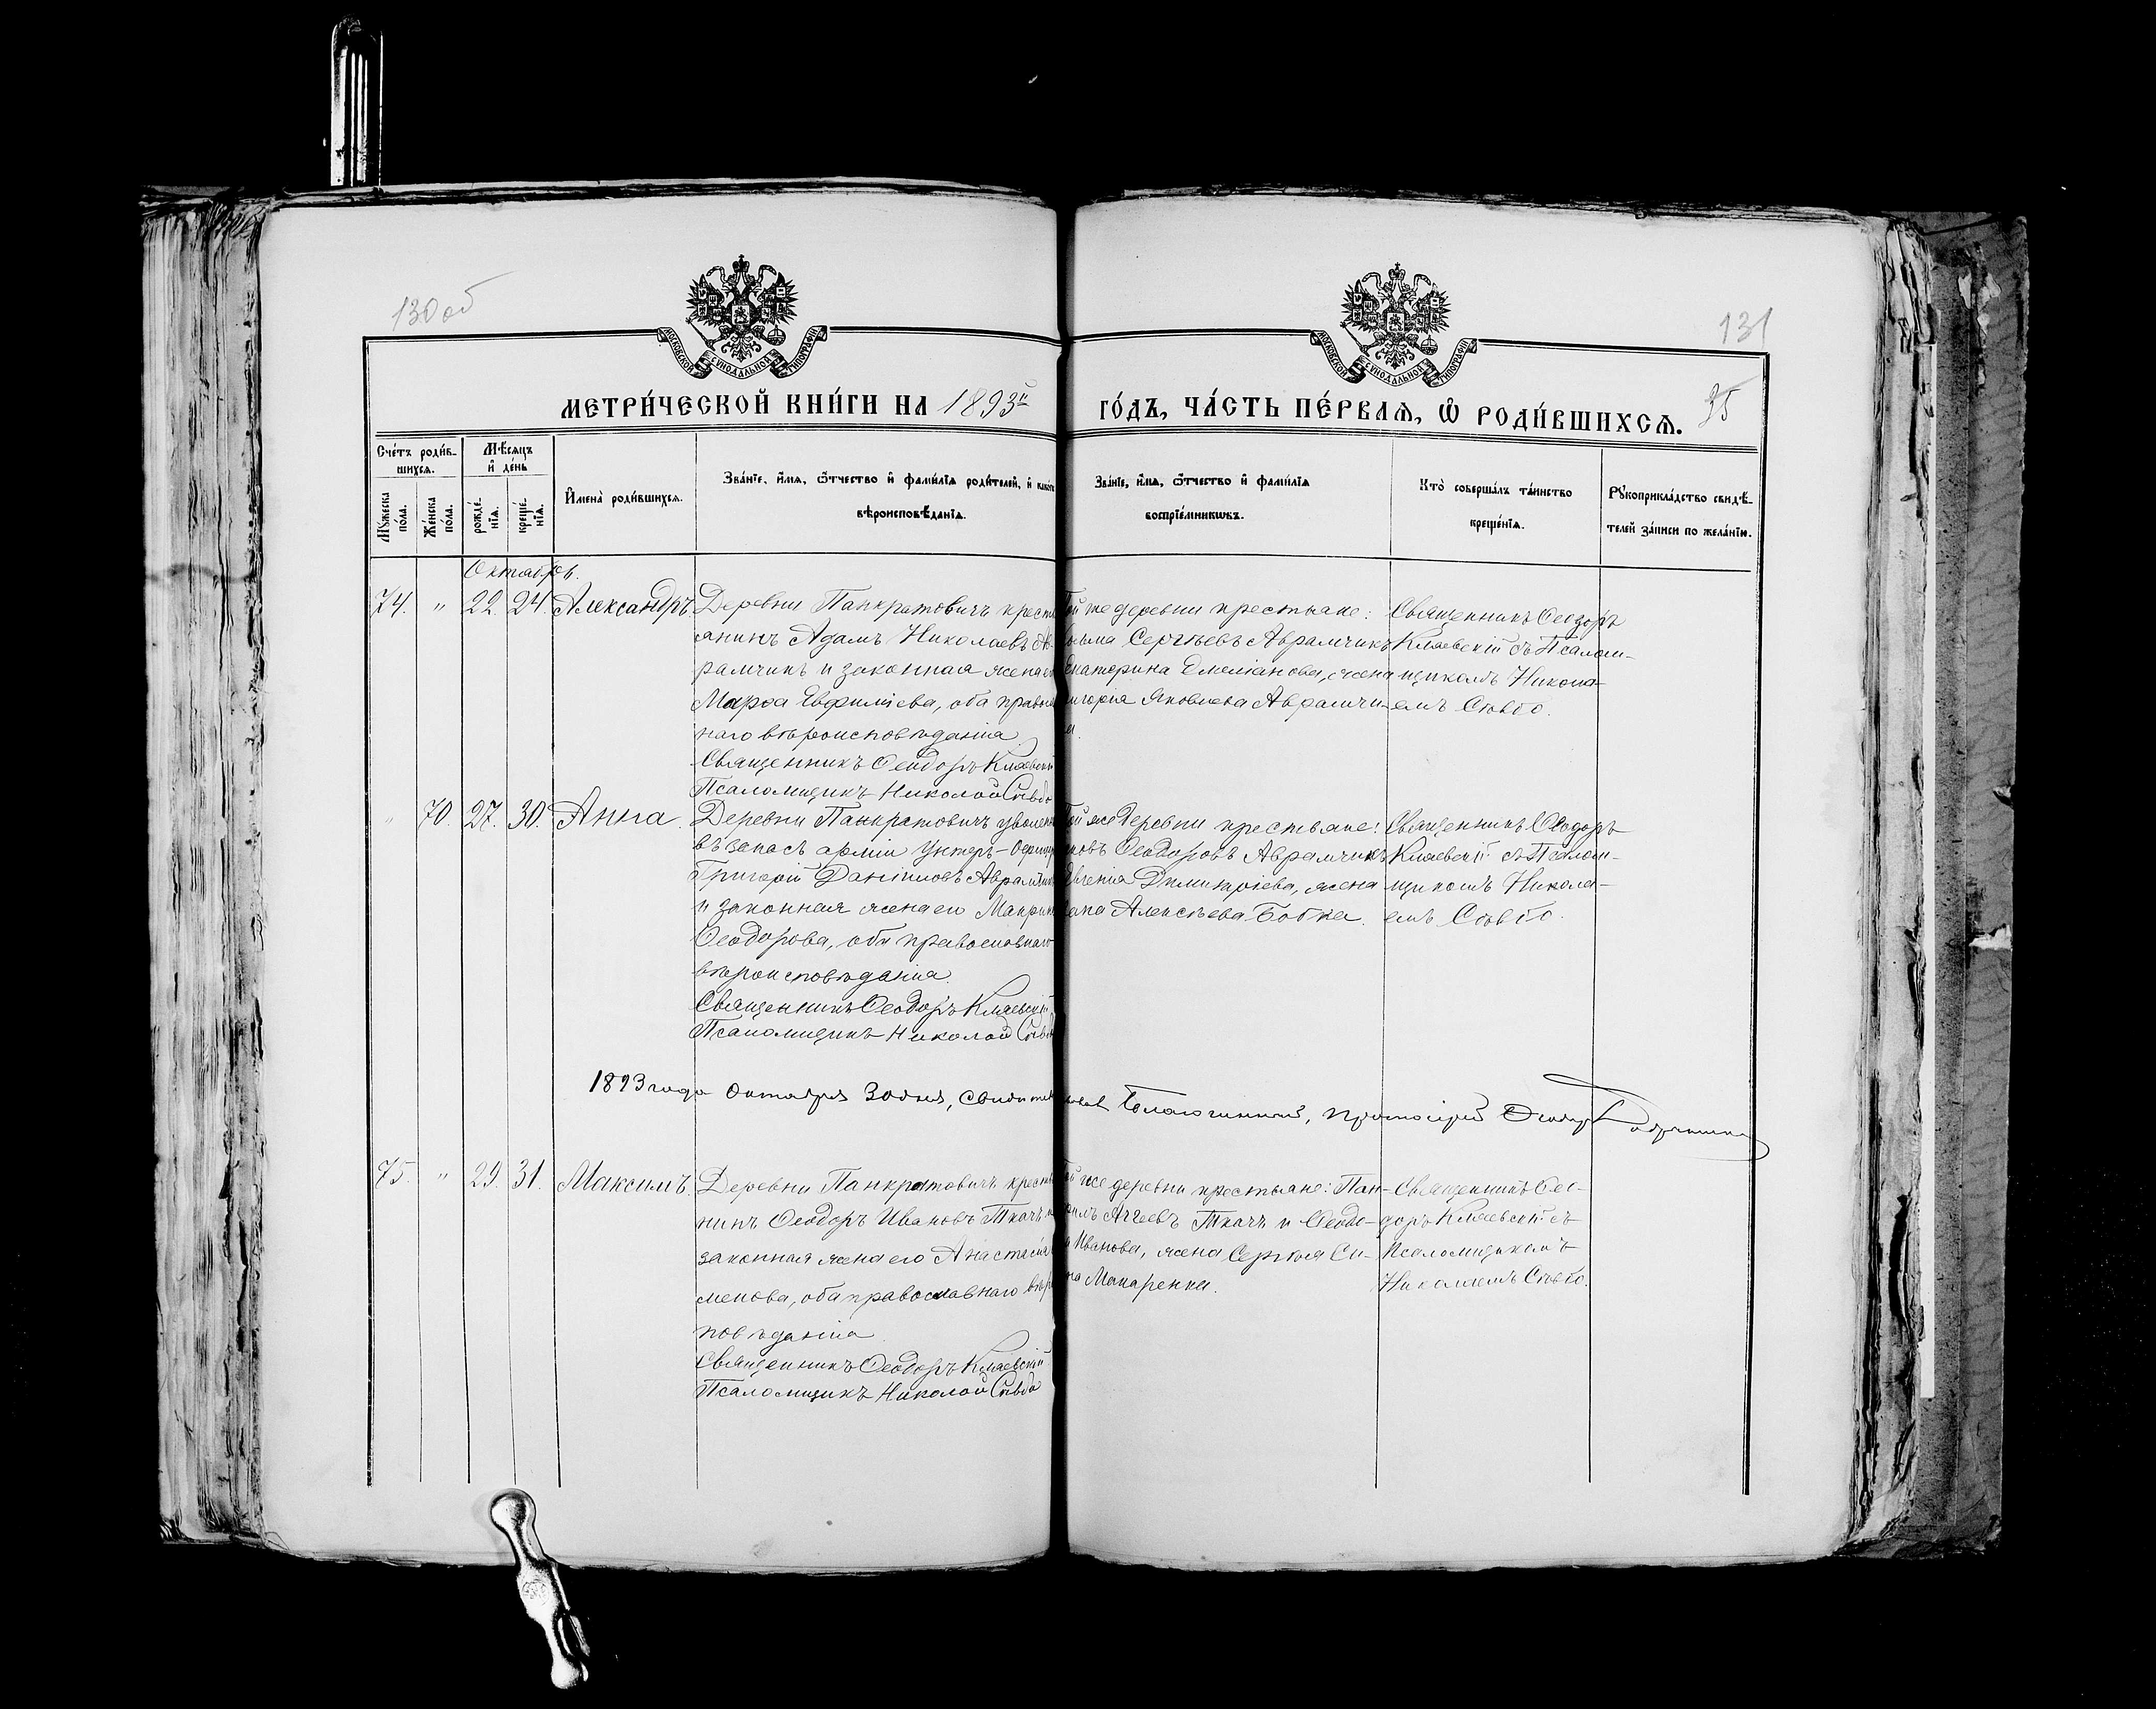 130 об
131
МОСКОВСКОЙ СУНОДАЛЬНОЙ ТИПОГРАФІИ
МОСКОВСКОЙ СУНОДАЛЬНОЙ ТИПОГРАФІИ
МЕТРИ́ЧЕСКОЙ КНИ́ГИ НА 1893й
ГО́ДЪ, ЧА́СТЬ ПЕ́РВАѦ, Ѡ҆ РОДИ́ВШИХСѦ.
35
Сче́тъ роди́в-
шихсѧ.
Мꙋ́жеска по́ла.
Же́нска по́ла.
Мѣ́сѧцъ
и҆ де́нь
рожде́-
нїѧ.
креще́-
нїѧ.
И҆мена̀ роди́вшихсѧ.
Зва́нїе, и҆́мѧ, ѻ҆́тчество и҆ фами́лїѧ роди́телей, и҆ како́гѡ
вѣроисповѣ́данїѧ.
Зва́нїе, и҆́мѧ, ѻ҆́тчество и҆ фами́лїѧ
воспрїе́мникѡвъ.
Кто̀ соверша́лъ та́инство
креще́нїѧ.
Рꙋкоприкла́дство свидѣ́-
телей за́писи по жела́нїю.
Октябрь.
74. " 22. 24. Александръ.
Деревни Панкратовичъ крестья
янинъ Адамъ Николаевъ Ав
рамчикъ и законная жена его
Марѳа Евфиміева, оба правосл
наго вѣроисповѣданія.
Священникъ Ѳеодоръ Кляевскій
Псаломщикъ Николай Сѣвбо
той же деревни крестьяне:
Сергѣевъ Аврамчикъ
Екатерина Емеліанова, жена
Григорія Яковлева Аврамчи-
ка.
Священникъ Ѳеодоръ
Кляевскій съ Псалом-
щикомъ Никола-
емъ Сѣвбо.
" 70. 27. 30. Анна.
Деревни Панкратовичъ уволен
въ запасъ арміи унтеръ-офицер
Григорій Даніиловъ Аврамчик
и законная жена его Макрина
Ѳеодорова, оба православнаго
вѣроисповѣданія.
Священникъ Ѳеодоръ Кляевскій
Псаломщикъ Николай Сѣвбо
той же деревни крестьяне:
Ѳеодоровъ Аврамчикъ
Евгенія Димитріева, жена
Алексѣева Бобка.
Священникъ Ѳеодоръ
Кляевскій съ Псалом-
щикомъ Никола-
емъ Сѣвбо.
1893 года Октября 30 дня, свидѣтельствовалъ Благочинный, Протоіерей Ѳеодоръ
75. " 29. 31. Максимъ.
Деревни Панкратовичъ крестья
нинъ Ѳеодоръ Ивановъ Ткачъ и
законная жена его Анастасія
менова, оба православнаго вѣро
повѣданія.
Священникъ Ѳеодоръ Кляевскій
Псаломщикъ Николай Сѣвбо
той же деревни крестьяне: Пан-
филъ Аггеевъ Ткачъ и Ѳеодо-
ра Иванова, жена Сергѣя Си-
на Макаренка.
Священникъ Ѳео-
доръ Кляевскій съ
Псаломщикомъ
Николаемъ Сѣвбо.